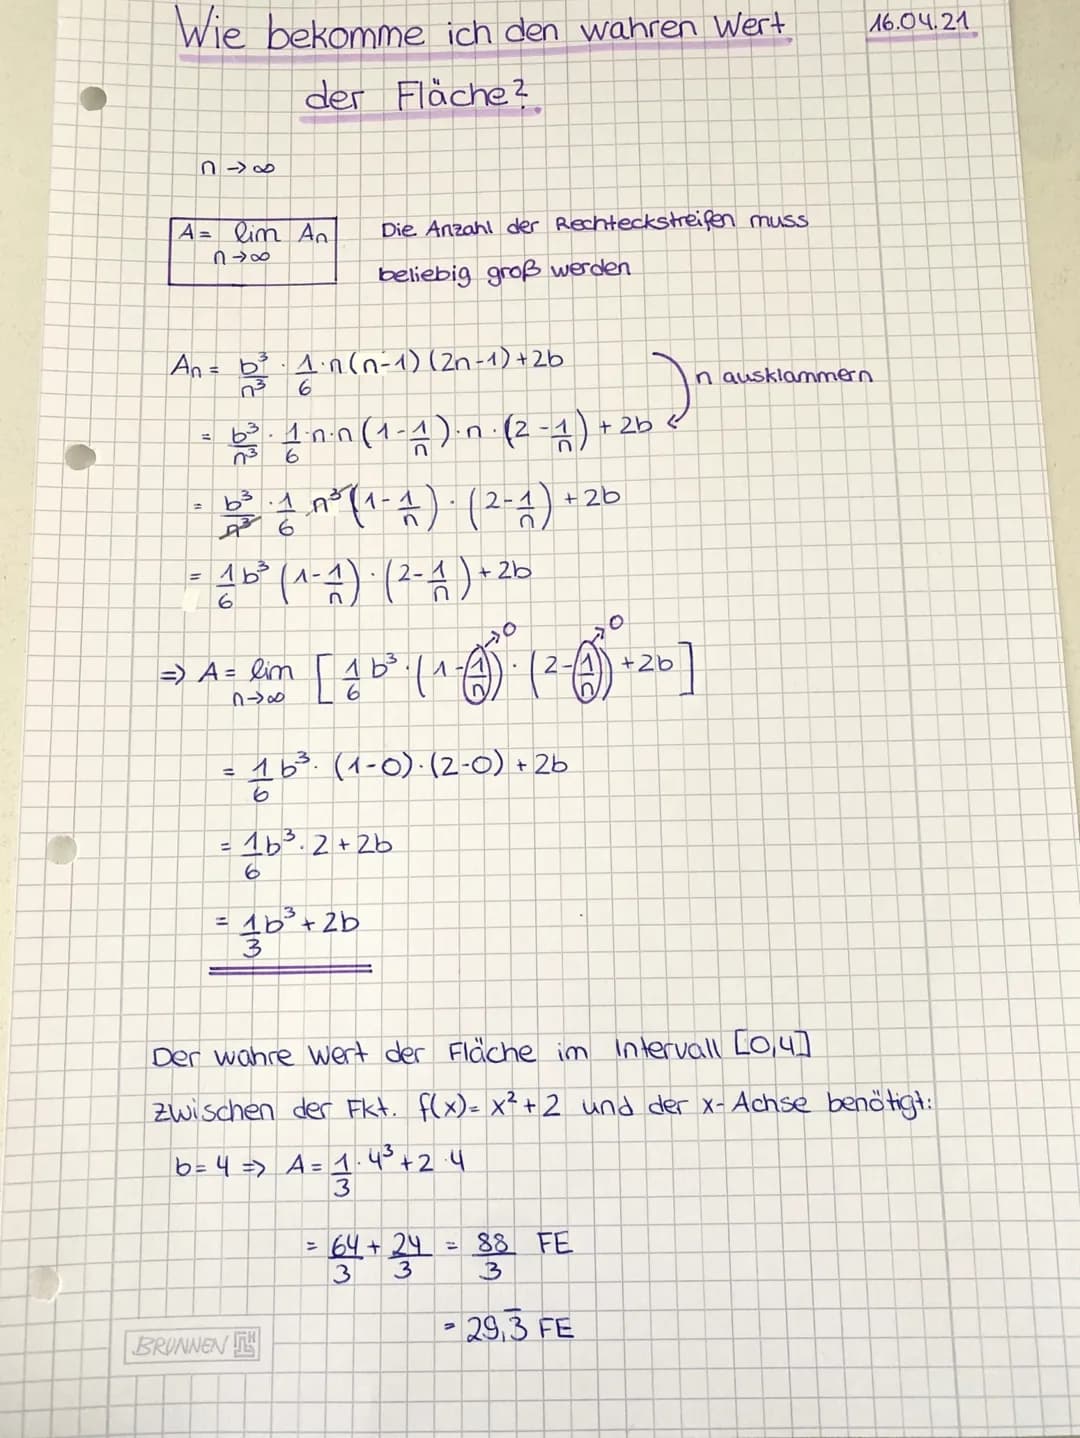 Wie bekomme ich den wahren Wert 16.04.21
der Fläche?
n → ∞
A = lim An Die Anzahl der Rechteckstreifen muss
n→∞ beliebig groß werden
An = b³/n³ · 1/6 · n(n-1)(2n-1)+2b
n ausklammern
= b³/n³ · 1/6 · n·n(1-1/n)·n·(2-1/n)+2b
= b³/n³ · 1/6 n³(1-1/n)·(2-1/n)+2b
= 1/6 b³ (1-1/n)·(2-1/n)+2b
→0 →0
⇒ A = lim [1/6 b³·(1-1/n)·(2-1/n)+2b]
n→∞
= 1/6 b³·(1-0)·(2-0)+2b
= 1/6 b³·2+2b
= 1/3 b³+2b
Der wahre Wert der Fläche im Intervall [0,4]
zwischen der Fkt. f(x)= x²+2 und der x-Achse benötigt:
b=4 ⇒ A = 1/3·4³+2·4
= 64/3 + 24/3 = 88/3 FE
= 29,3̅ FE
BRUNNEN